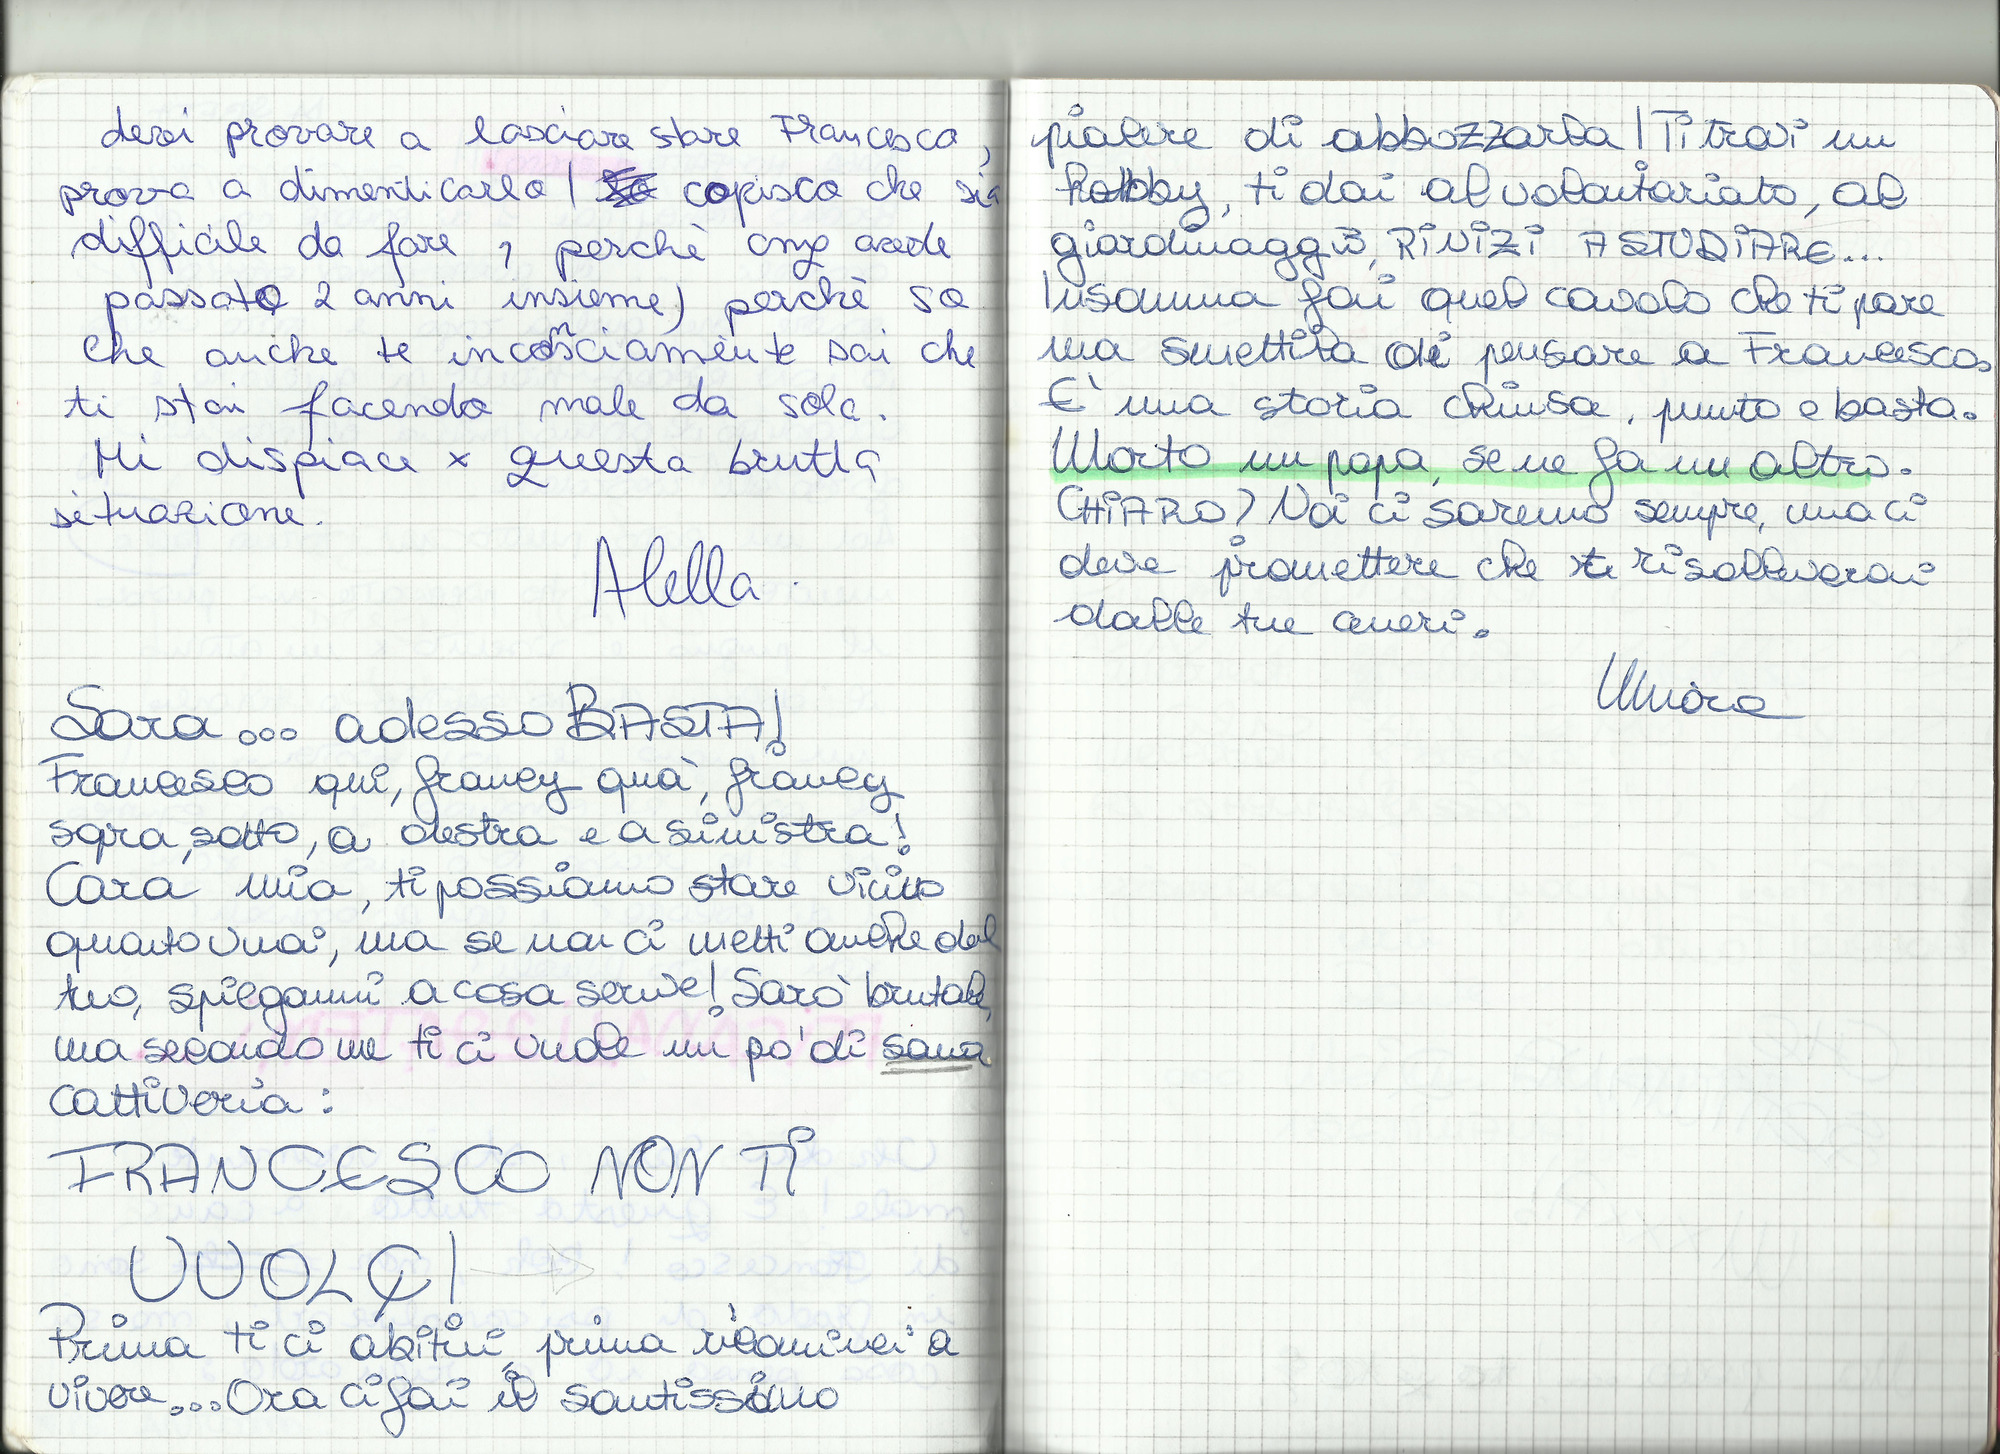 devi provare a lasciare stare Francesco,
prova a dimenticarlo! capisco che sia
difficile da fare, perchè avete
passato 2 anni insieme, perchè so
che anche te inconsciamente sai che
ti stai facendo male da sola.
Mi dispiace x questa brutta
situazione.
Alella.
Sara... adesso BASTA!
Francesco qui, francy quà, francy
sopra, sotto, a destra e a sinistra!
Cara mia, ti possiamo stare vicino
quanto vuoi, ma se non ci metti anche del
tuo, spiegami a cosa serve! Sarò brutale,
ma secondo me ti ci vuole un po' di sana
cattiveria:
FRANCESCO NON TI
VUOLE!
Prima ti ci abitui, prima ricominci a
vivere... Ora ci fai il santissimo
piacere di abbozzarla! Ti trovi un
hobby, ti dai al volontariato, al
giardinaggio, RINIZI A STUDIARE...
Insomma fai quel cavolo che ti pare
ma smettila di pensare a Francesco.
E' una storia chiusa, punto e basta.
Morto un papa, se ne fa un altro.
CHIARO? Noi ci saremo sempre, ma ci
deve promettere che ti risolleverai
dalle tue ceneri.